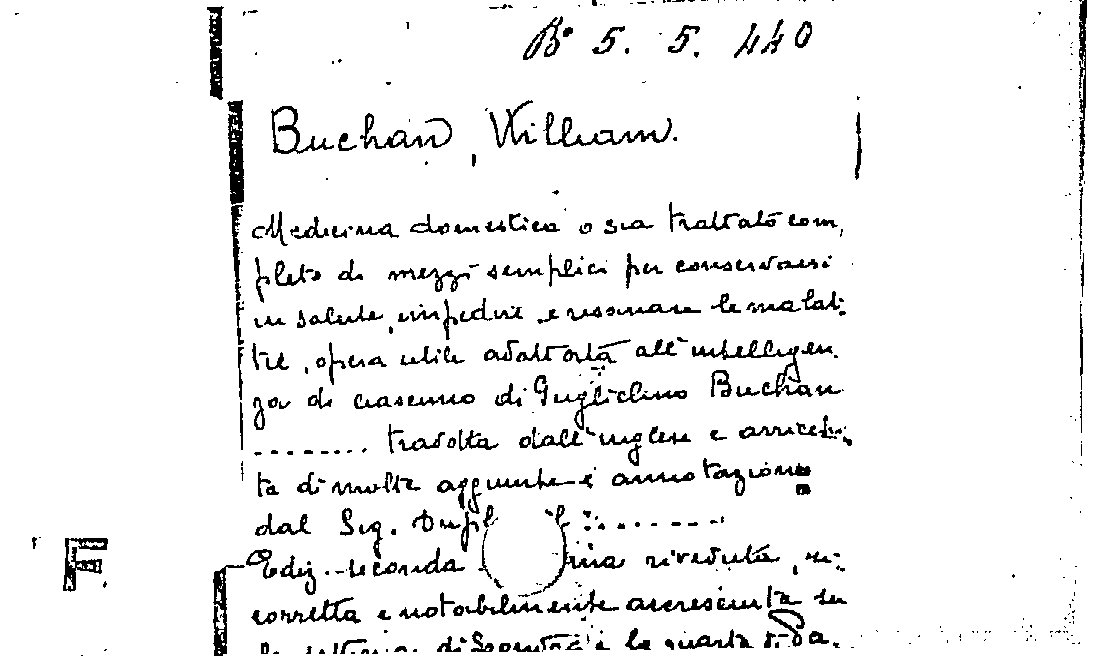 B° 5. 5. 440
Buchan, William.
Medicina domestica o sia trattato com,
pleto di mezzi semplici per conservarsi
in salute, impedire e risanare le malat:
tie, opera utile adattata all'intelligen.
za di ciascuno di Guglielmo Buchan
........ tradotta dall'inglese e arricchi,
ta di molte aggiunte e annotazioni
dal Sig. :.......
Ediz. seconda riveduta, ri:
corretta e notabilmente accresciuta su
la settima di e la quarta di Pa.
F